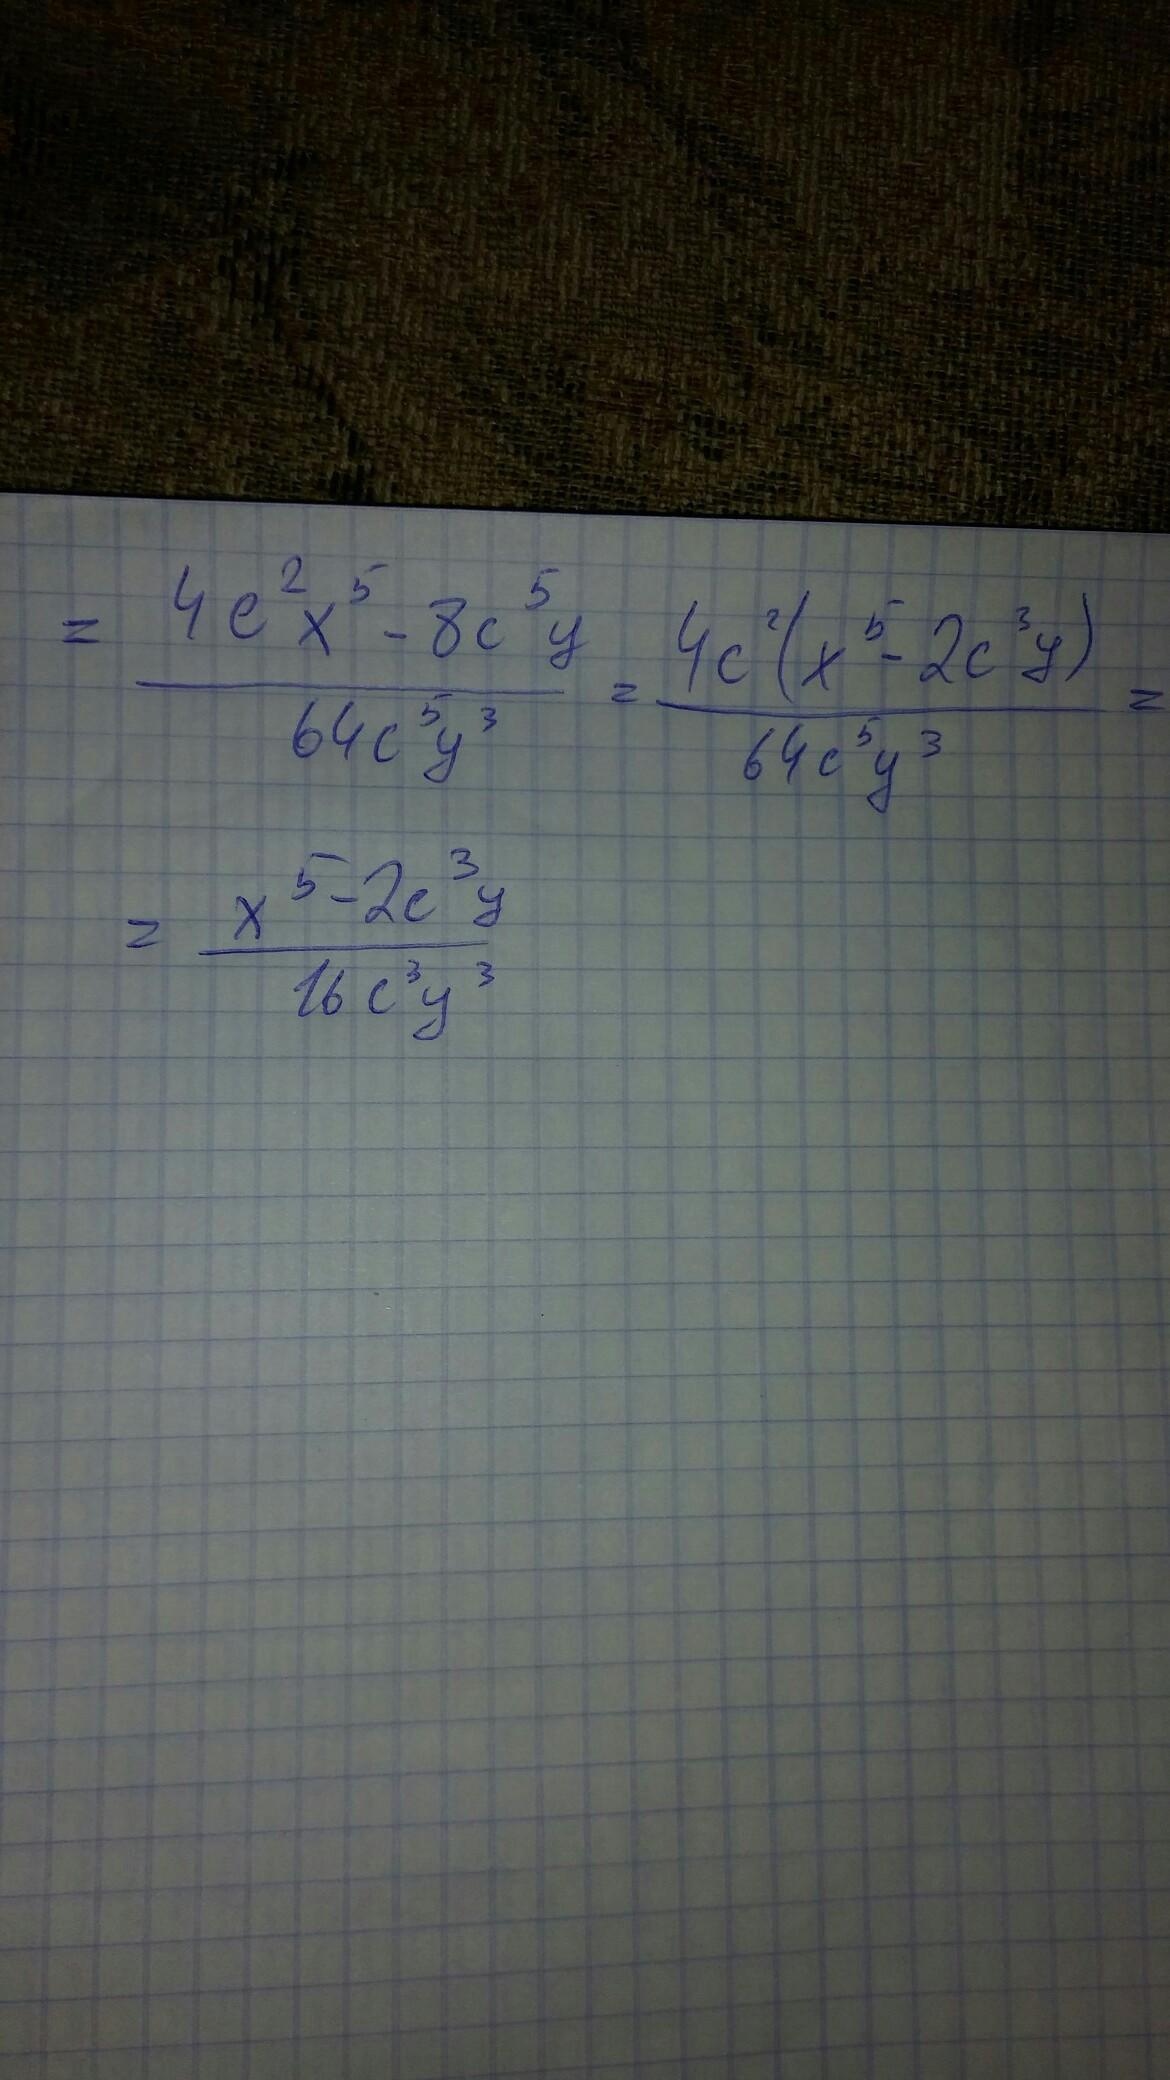 = (4c²x⁵ - 8c⁵y)/(64c⁵y³) = (4c²(x⁵ - 2c³y))/(64c⁵y³) =
= (x⁵ - 2c³y)/(16c³y³)